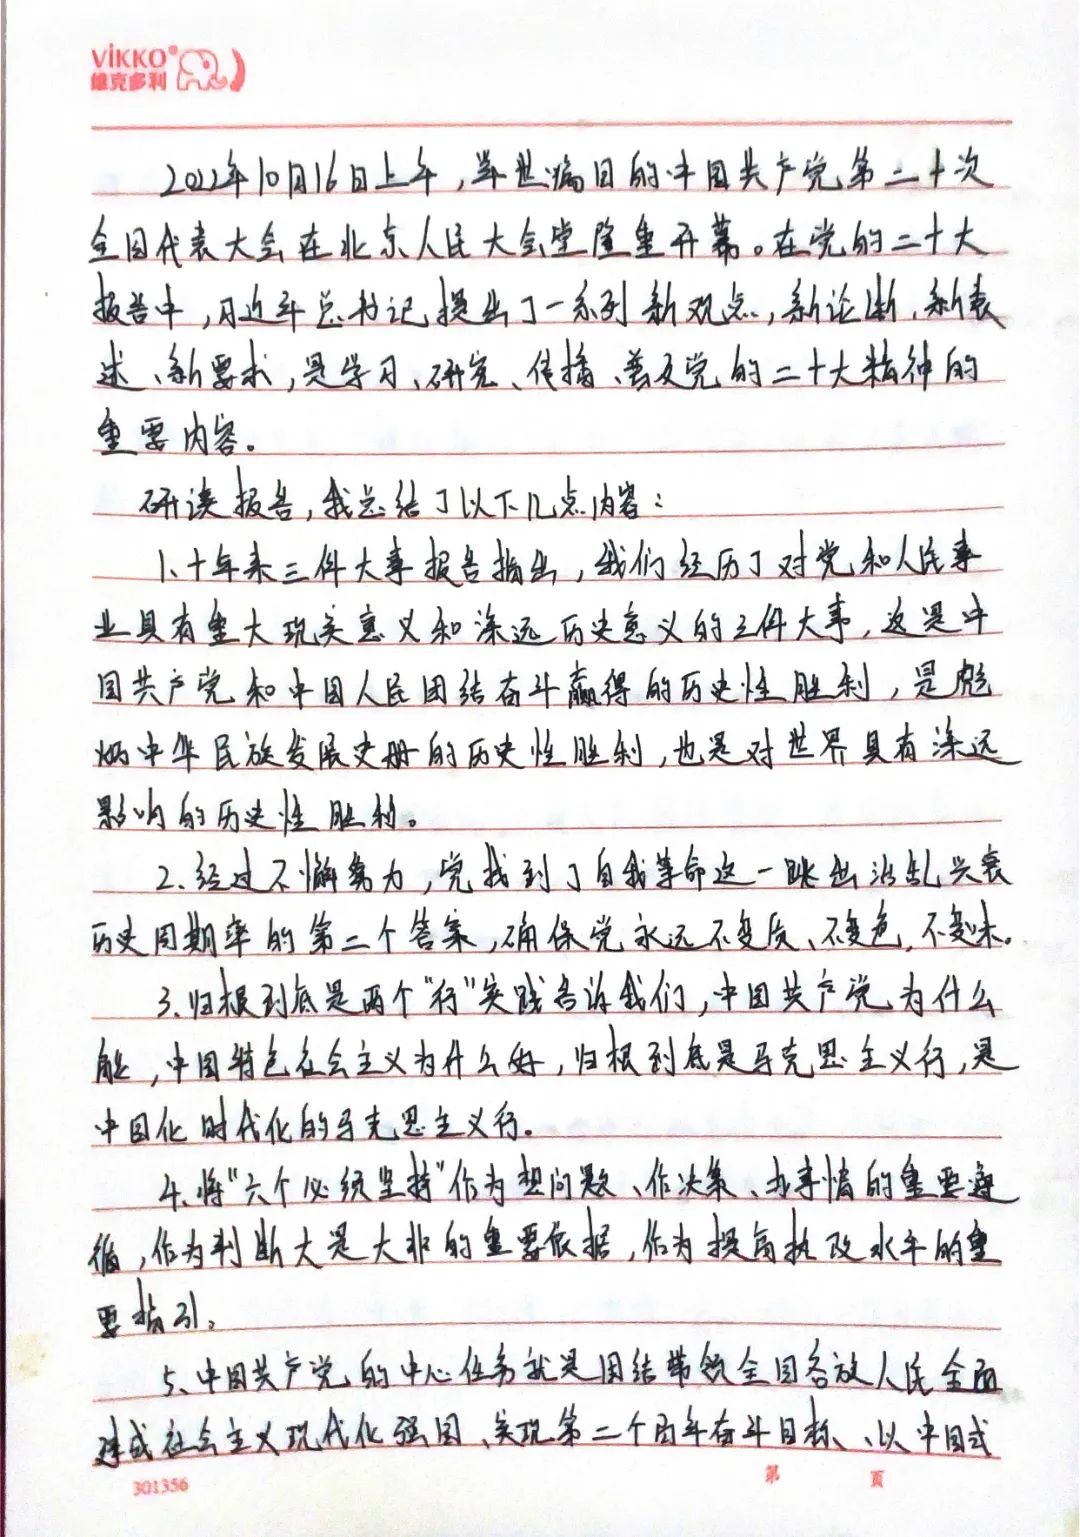 VIKKO®
维克多利
2022年10月16日上午，举世瞩目的中国共产党第二十次
全国代表大会在北京人民大会堂隆重开幕。在党的二十大
报告中，习近平总书记提出了一系列新观点，新论断、新表
述、新要求，是学习、研究、传播、普及党的二十大精神的
重要内容。
研读报告，我总结了以下几点内容：
1、十年来三件大事报告指出，我们经历了对党和人民事
业具有重大现实意义和深远历史意义的三件大事，这是中
国共产党和中国人民团结奋斗赢得的历史性胜利，是彪
炳中华民族发展史册的历史性胜利，也是对世界具有深远
影响的历史性胜利。
2、经过不懈努力，党找到了自我革命这一跳出治乱兴衰
历史周期率的第二个答案，确保党永远不变质、不变色，不变味。
3、归根到底是两个“行”实践告诉我们，中国共产党为什么
能，中国特色社会主义为什么好，归根到底是马克思主义行，是
中国化时代化的马克思主义行。
4、将“六个必须坚持”作为想问题、作决策、办事情的重要遵
循，作为判断大是大非的重要依据，作为提高执政水平的重
要指引。
5、中国共产党的中心任务就是团结带领全国各族人民全面
建成社会主义现代化强国、实现第二个百年奋斗目标、以中国式
301356 第 页